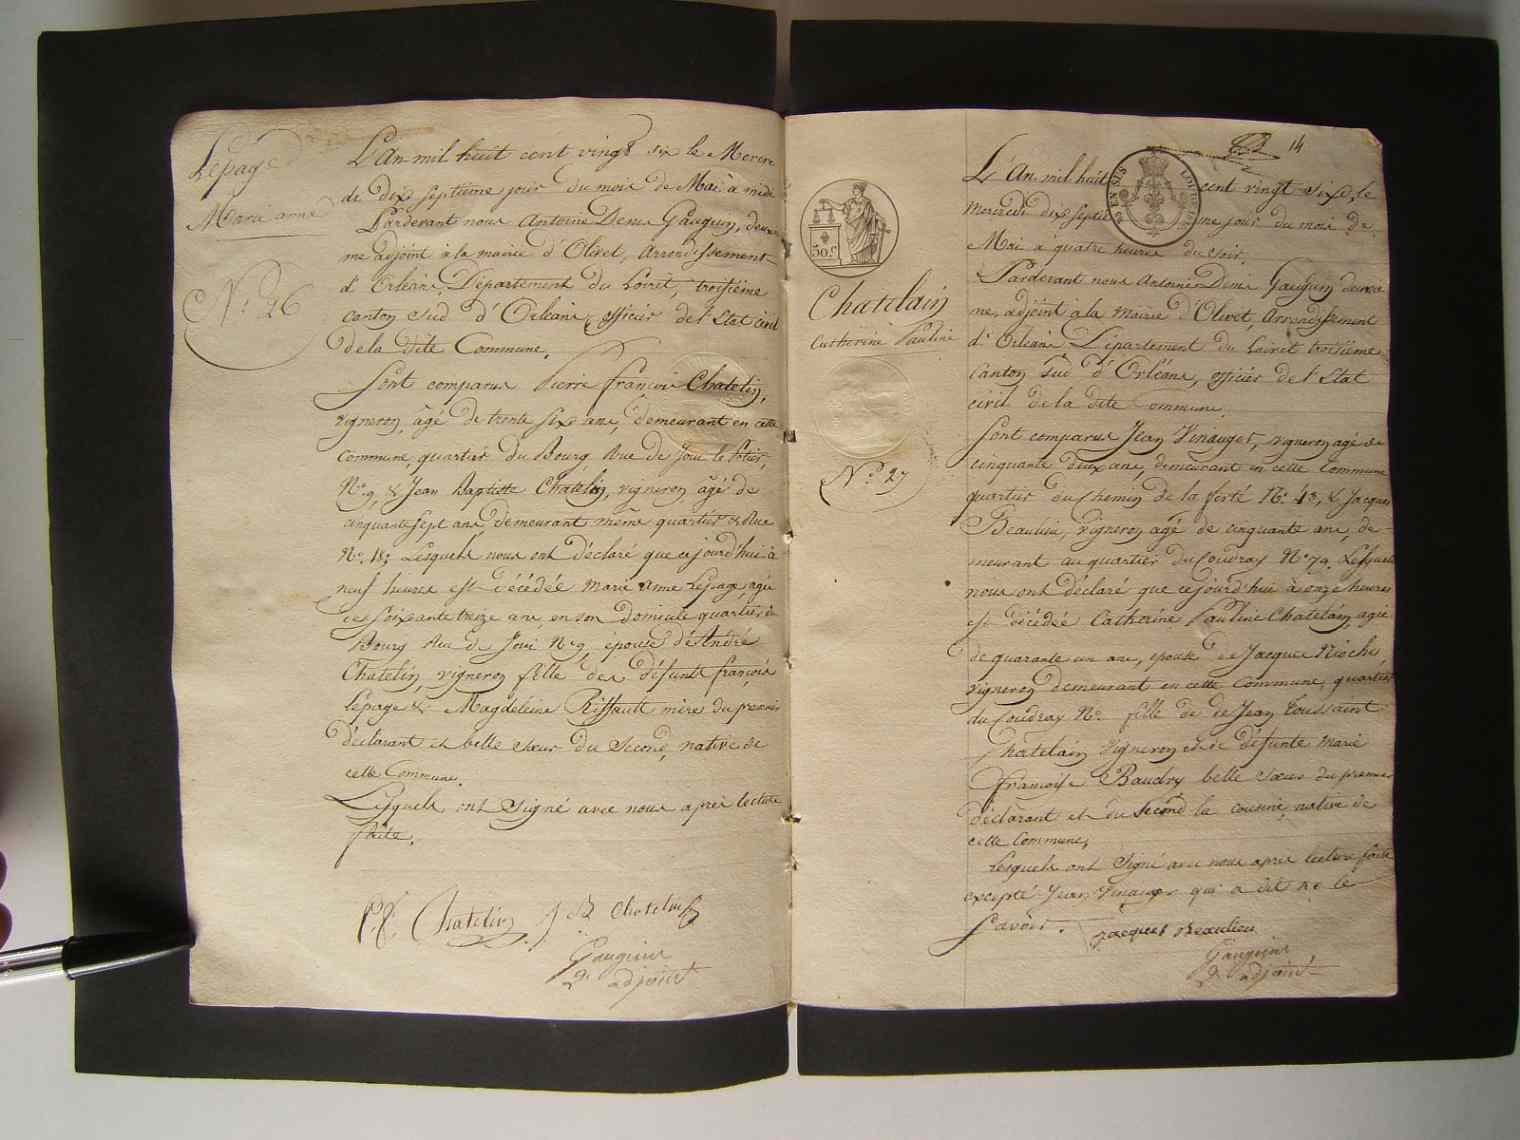 Lepage
Marie anne
N.° 26
L'An mil huit cent vingt six le Mercre
de dix septième jour du mois de Mai à midi
Pardevant nous Antoine Denis Gauguin, deuxie
me adjoint à la mairie d'Olivet, Arrondissement
d'Orléans, Département du Loiret, troisième
canton sud d'Orléans, officier de l'Etat civil
de la dite Commune.
Sont comparus Pierre françois Chatelin,
vigneron, âgé de trente six ans, demeurant en cette
commune, quartier du Bourg Rue de Joui le Potier,
N.° 9, & Jean Baptiste Chatelin, vigneron âgé de
cinquante sept ans, demeurant même quartier et Rue
N.° 18; Lesquels nous ont déclaré que cejourd'hui à
neuf heures est décédée Marie Anne Lepage, agée
de soixante treize ans, en son domicile quartier du
Bourg Rue de Joui N.° 9, épouse d'André
Chatelin, vigneron fille des défunts françois
Lepage & Magdeleine Riffault mère du premier
déclarant et belle sœur du second, native de
cette Commune.
Lesquels ont signé avec nous après lecture
faite.
P. f. Chatelin J B Chatelin
Gauguin
2e adjoint
14
50 c
Chatelain
Catherine Pauline
N.° 27
L'An mil huit cent vingt six, le
Mercredi dix septième jour du mois de
Mai à quatre heures du soir.
Pardevant nous Antoine Denis Gauguin deuxie
me, adjoint à la mairie d'Olivet, Arrondissement
d'Orléans Département du Loiret troisième
Canton sud d'Orléans, officier de l'Etat
civil de la dite Commune.
Sont comparus Jean Vinauger, vigneron agé de
cinquante deux ans, demeurant en cette Commune
quartier du Chemin de la ferté N.° 43, & Jacques
Beaulieu, vigneron agé de cinquante ans, de-
meurant au quartier du Coudray N.° 79. Lesquels
nous ont déclaré que cejourd'hui à onze heures
est décédée Catherine Pauline Chatelain, agée
de quarante un ans, épouse de Jacques Rioche,
vigneron demeurant en cette commune, quartier
du Coudray N.° fille de de Jean Toussaint
Chatelain vigneron et de défunte Marie
françoise Baudry belle sœur du premier
déclarant et du second la cousine, native de
cette Commune,
Lesquels ont signé avec nous après lecture faite
excepté Jean Vinauger qui a dit ne le
Savoir.
jacques Beaulieu
Gauguin
2e adjoint